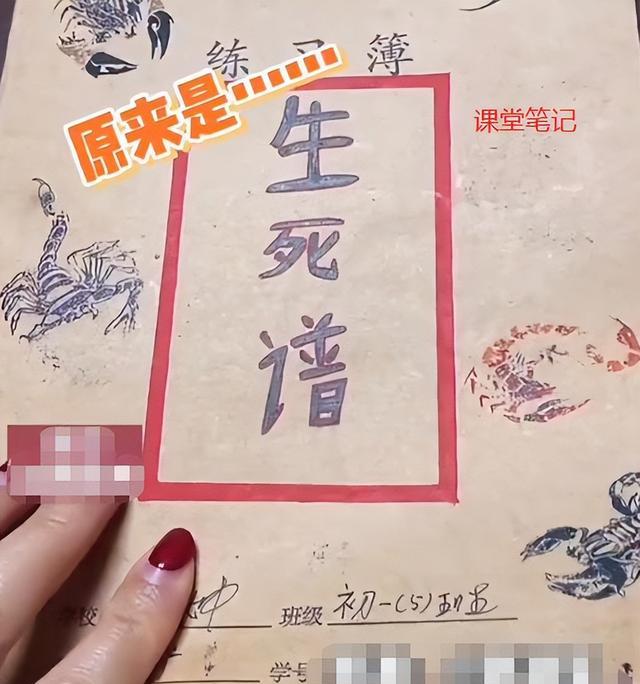 练习簿
原来是……
课堂笔记
生
死
谱
学校
中
班级 初一(5)
学号